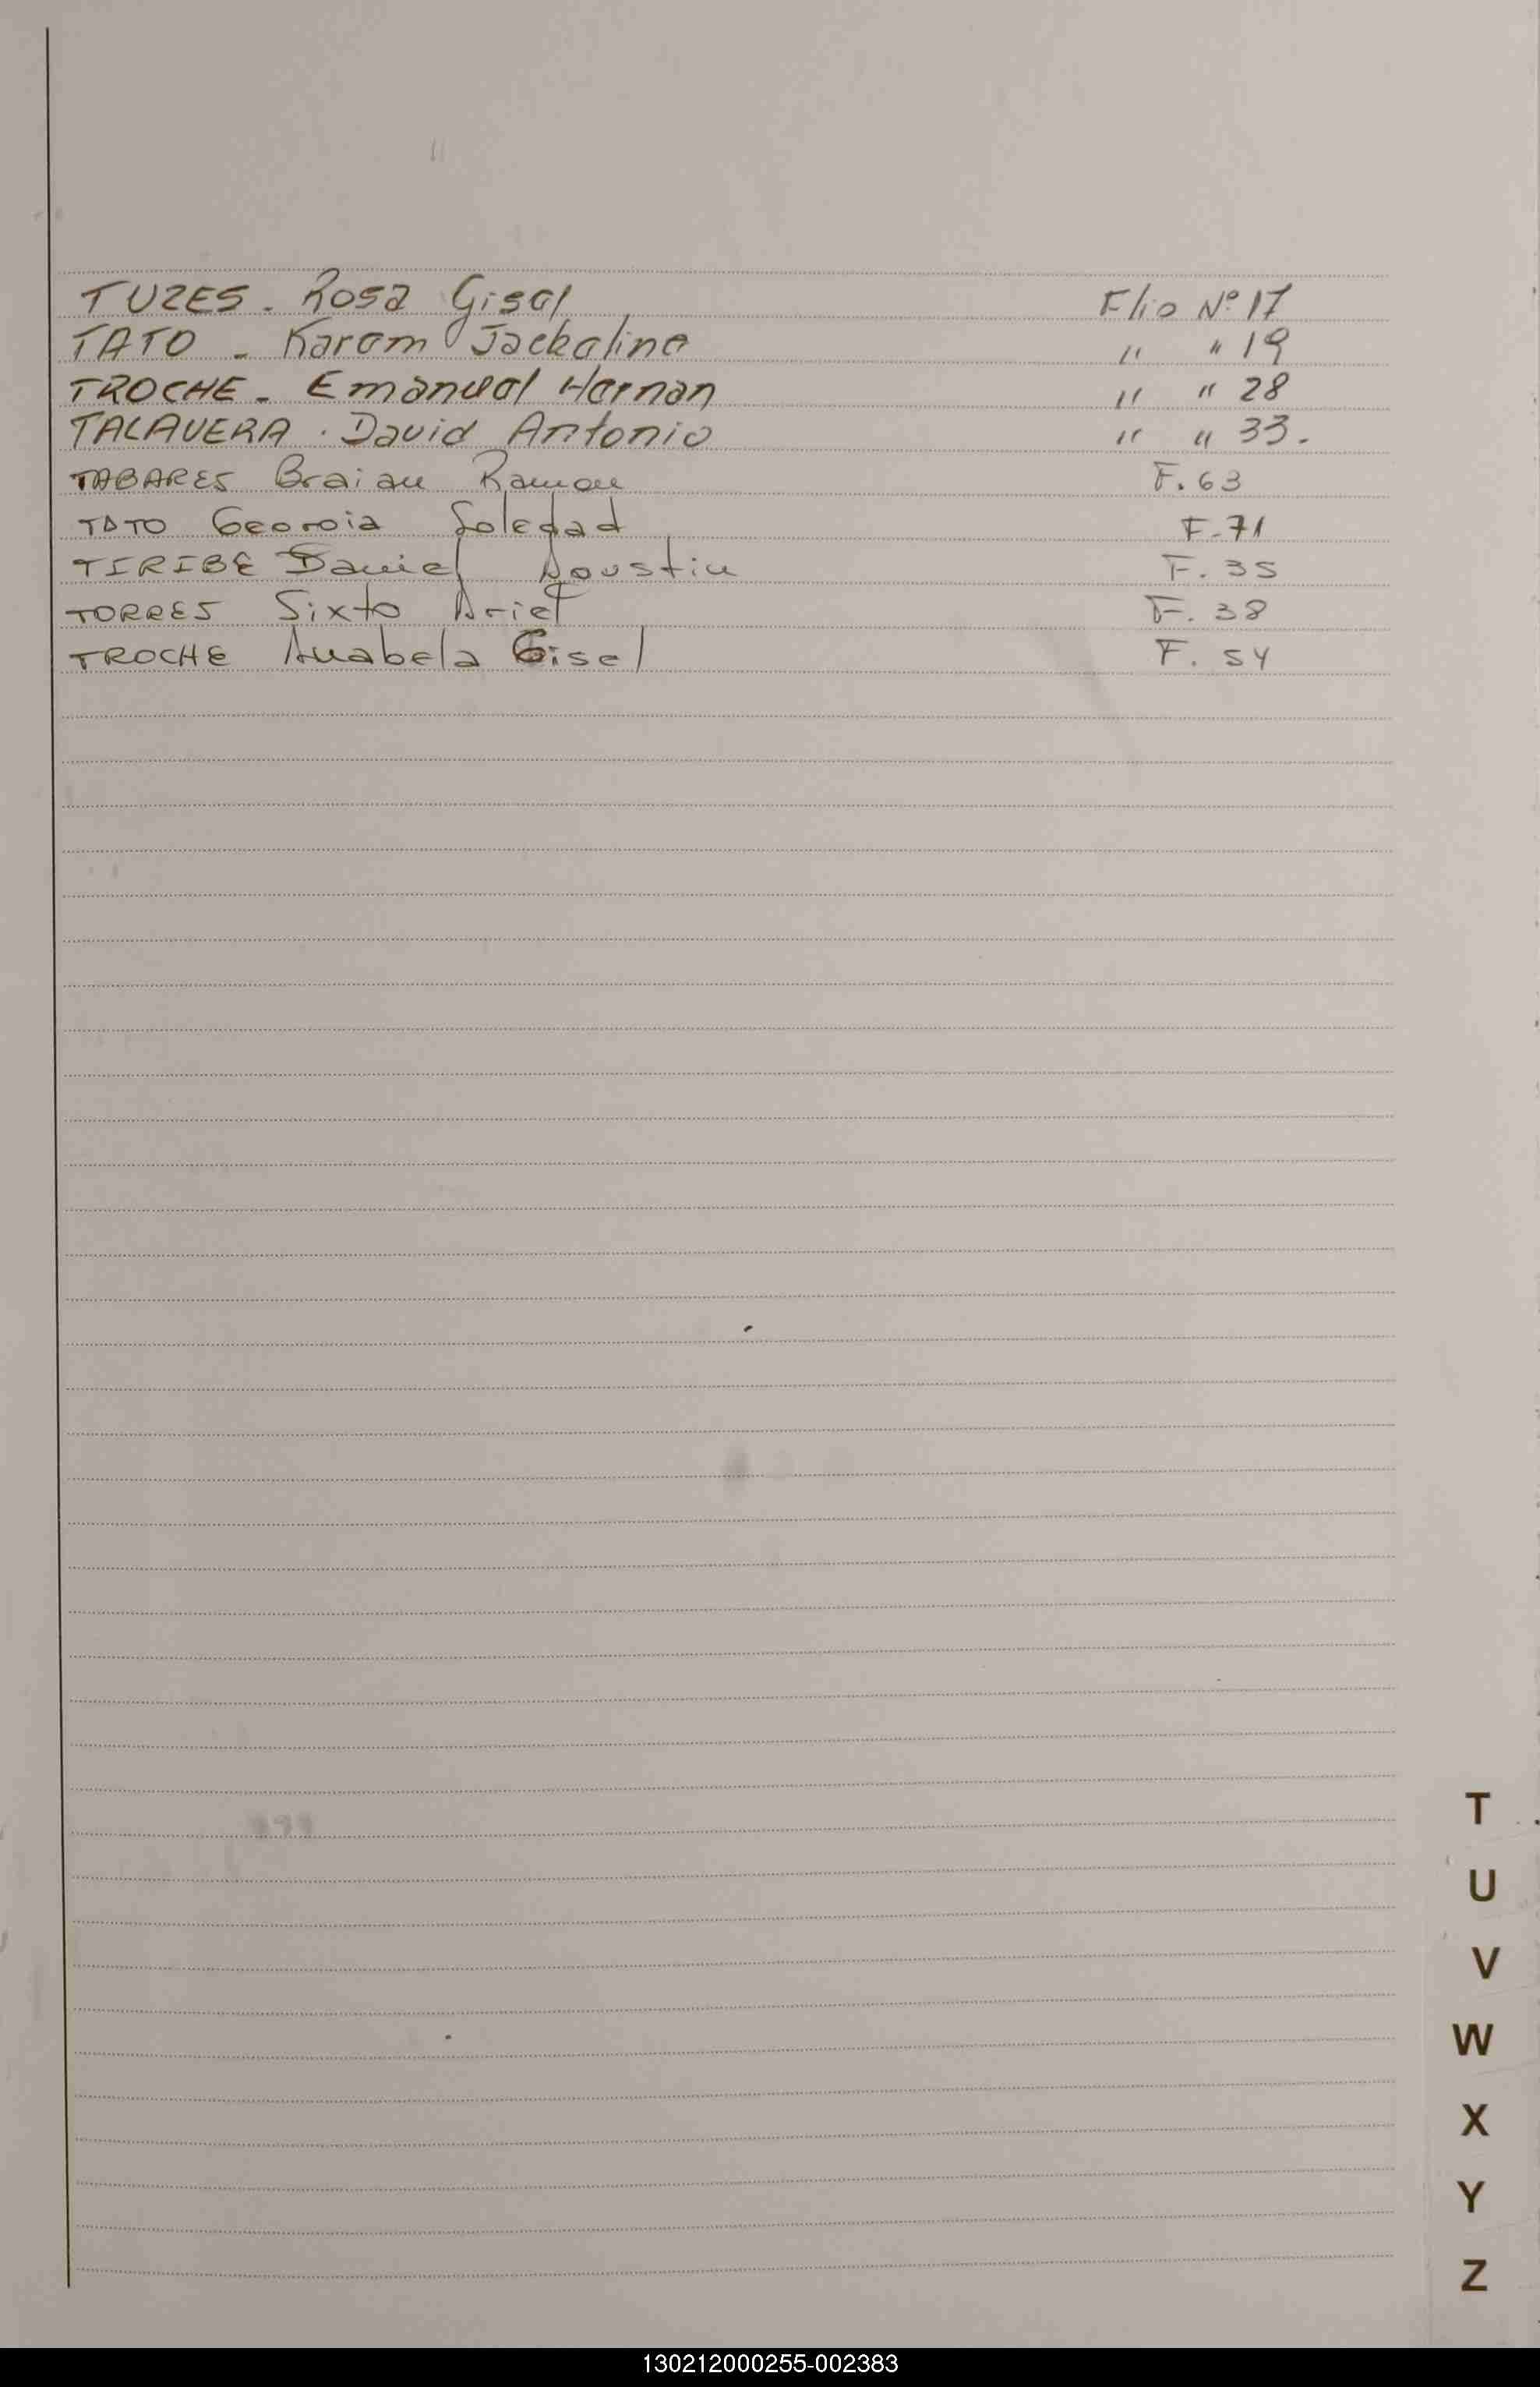 TUZES. Rosa Gisel Flio Nº 17
TATO - Karem Jackeline " " 19
TROCHE - Emanuel Hernan " " 28
TALAVERA. David Antonio " " 33.
TABARES Braian Ramon F. 63
TATO Georgia Soledad F-71
TIRIBE Daniel Agustin F. 35
TORRES Sixto Ariel F. 38
TROCHE Anabela Gisel F. 54
T
U
V
W
X
Y
Z
130212000255-002383